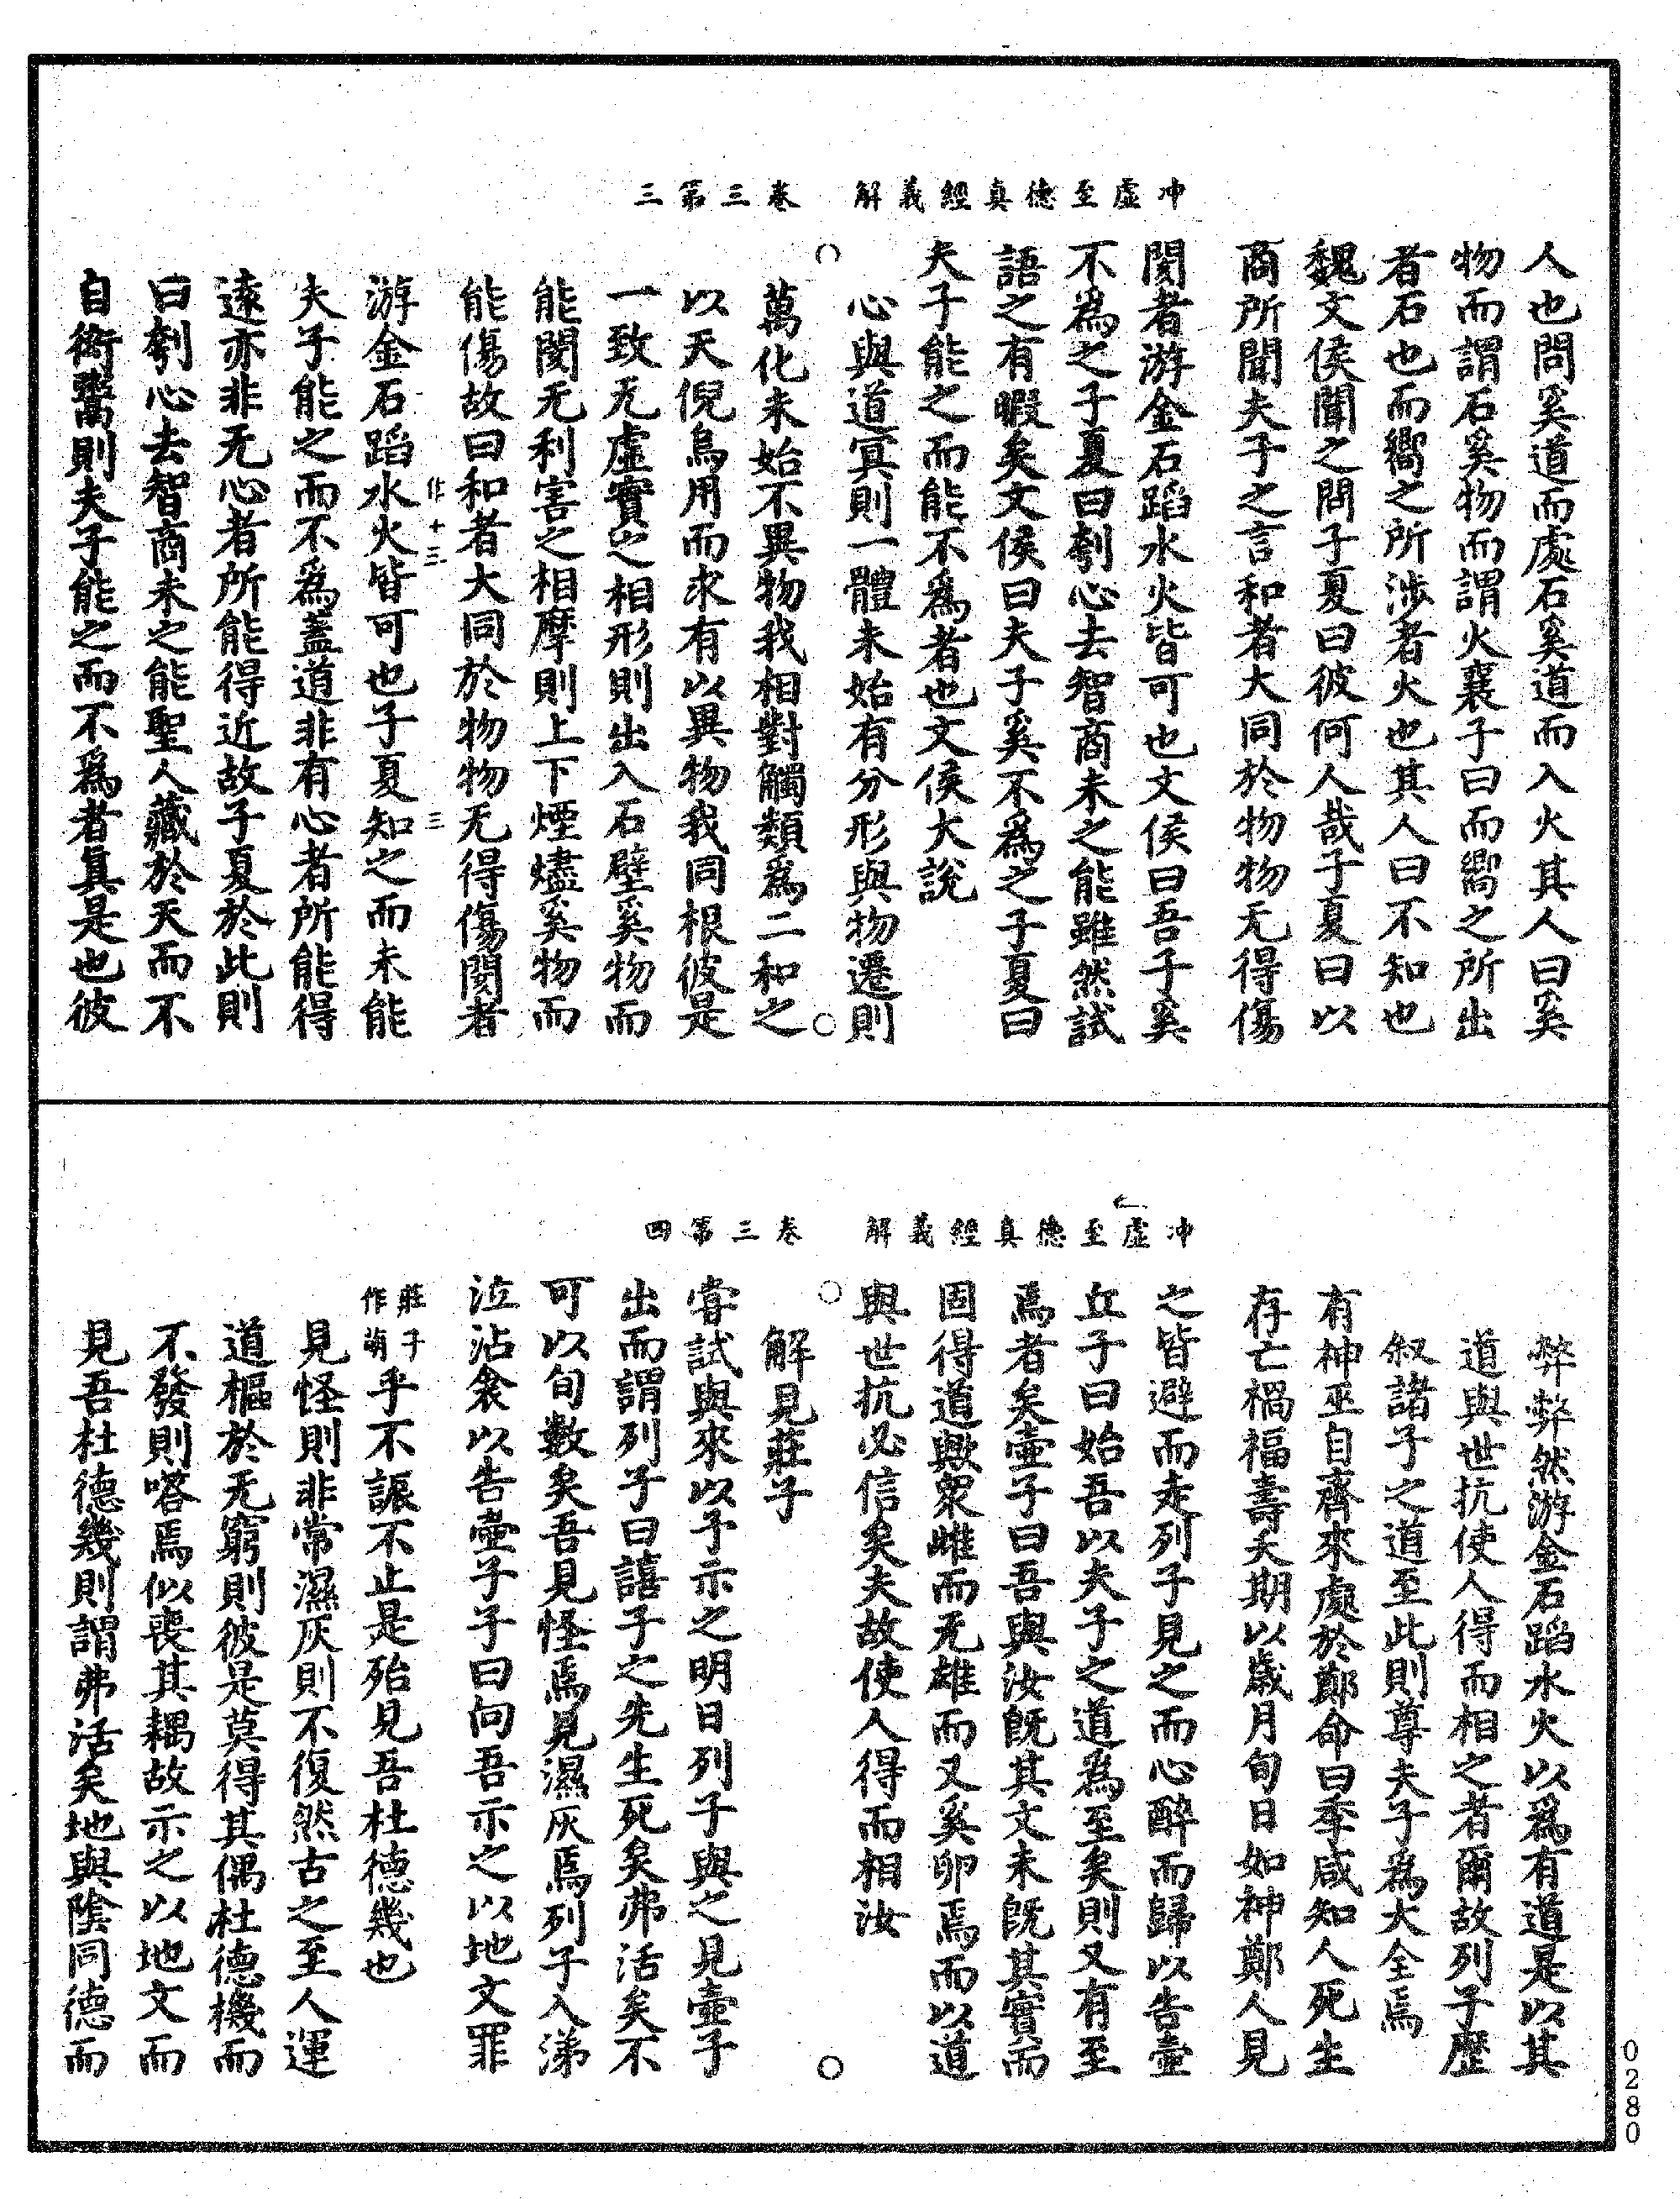 冲虛至德真經義解　卷三第三
人也問奚道而處石奚道而入火其人曰奚
物而謂石奚物而謂火襄子曰而嚮之所出
者石也而嚮之所涉者火也其人曰不知也
魏文侯聞之問子夏曰彼何人哉子夏曰以
商所聞夫子之言和者大同於物物无得傷
閡者游金石蹈水火皆可也文侯曰吾子奚
不為之子夏曰刳心去智商未之能雖然試
語之有暇矣文侯曰夫子奚不為之子夏曰
夫子能之而能不為者也文侯大說
心與道冥則一體未始有分形與物遷則
萬化未始不異物我相對觸類為二和之
以天倪烏用而求有以異物我同根彼是
一致无虛實之相形則出入石壁奚物而
能閡无利害之相摩則上下煙燼奚物而
能傷故曰和者大同於物物无得傷閡者
作十三　三
游金石蹈水火皆可也子夏知之而未能
夫子能之而不為蓋道非有心者所能得
遠亦非无心者所能得近故子夏於此則
曰刳心去智商未之能聖人藏於天而不
自衒鬻則夫子能之而不為者真是也彼
冲虛至德真經義解　卷三第四
弊弊然游金石蹈水火以為有道是以其
道與世抗使人得而相之者爾故列子歷
叙諸子之道至此則尊夫子為大全焉
有神巫自齊來處於鄭命曰季咸知人死生
存亡禍福壽夭期以歲月旬日如神鄭人見
之皆避而走列子見之而心醉而歸以告壺
丘子曰始吾以夫子之道為至矣則又有至
焉者矣壺子曰吾與汝既其文未既其實而
固得道歟眾雌而无雄而又奚卵焉而以道
與世抗必信矣夫故使人得而相汝
解見莊子
嘗試與來以予示之明日列子與之見壺子
出而謂列子曰譆子之先生死矣弗活矣不
可以旬數矣吾見怪焉見濕灰焉列子入涕
泣沾衾以告壺子子曰向吾示之以地文罪
莊子作萌乎不誫不止是殆見吾杜德幾也
見怪則非常濕灰則不復然古之至人運
道樞於无窮則彼是莫得其偶杜德機而
不發則嗒焉似喪其耦故示之以地文而
見吾杜德幾則謂弗活矣地與陰同德而
0280